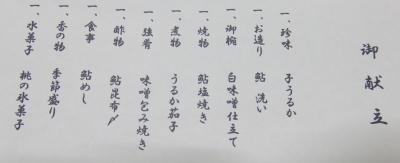 御献立
一、珍味 子うるか
一、お造り 鮎 洗い
一、御椀 白味噌仕立て
一、焼物 鮎塩焼き
一、煮物 うるか茄子
一、強肴 味噌包み焼き
一、酢物 鮎昆布〆
一、食事 鮎めし
一、香の物 季節盛り
一、水菓子 桃の氷菓子